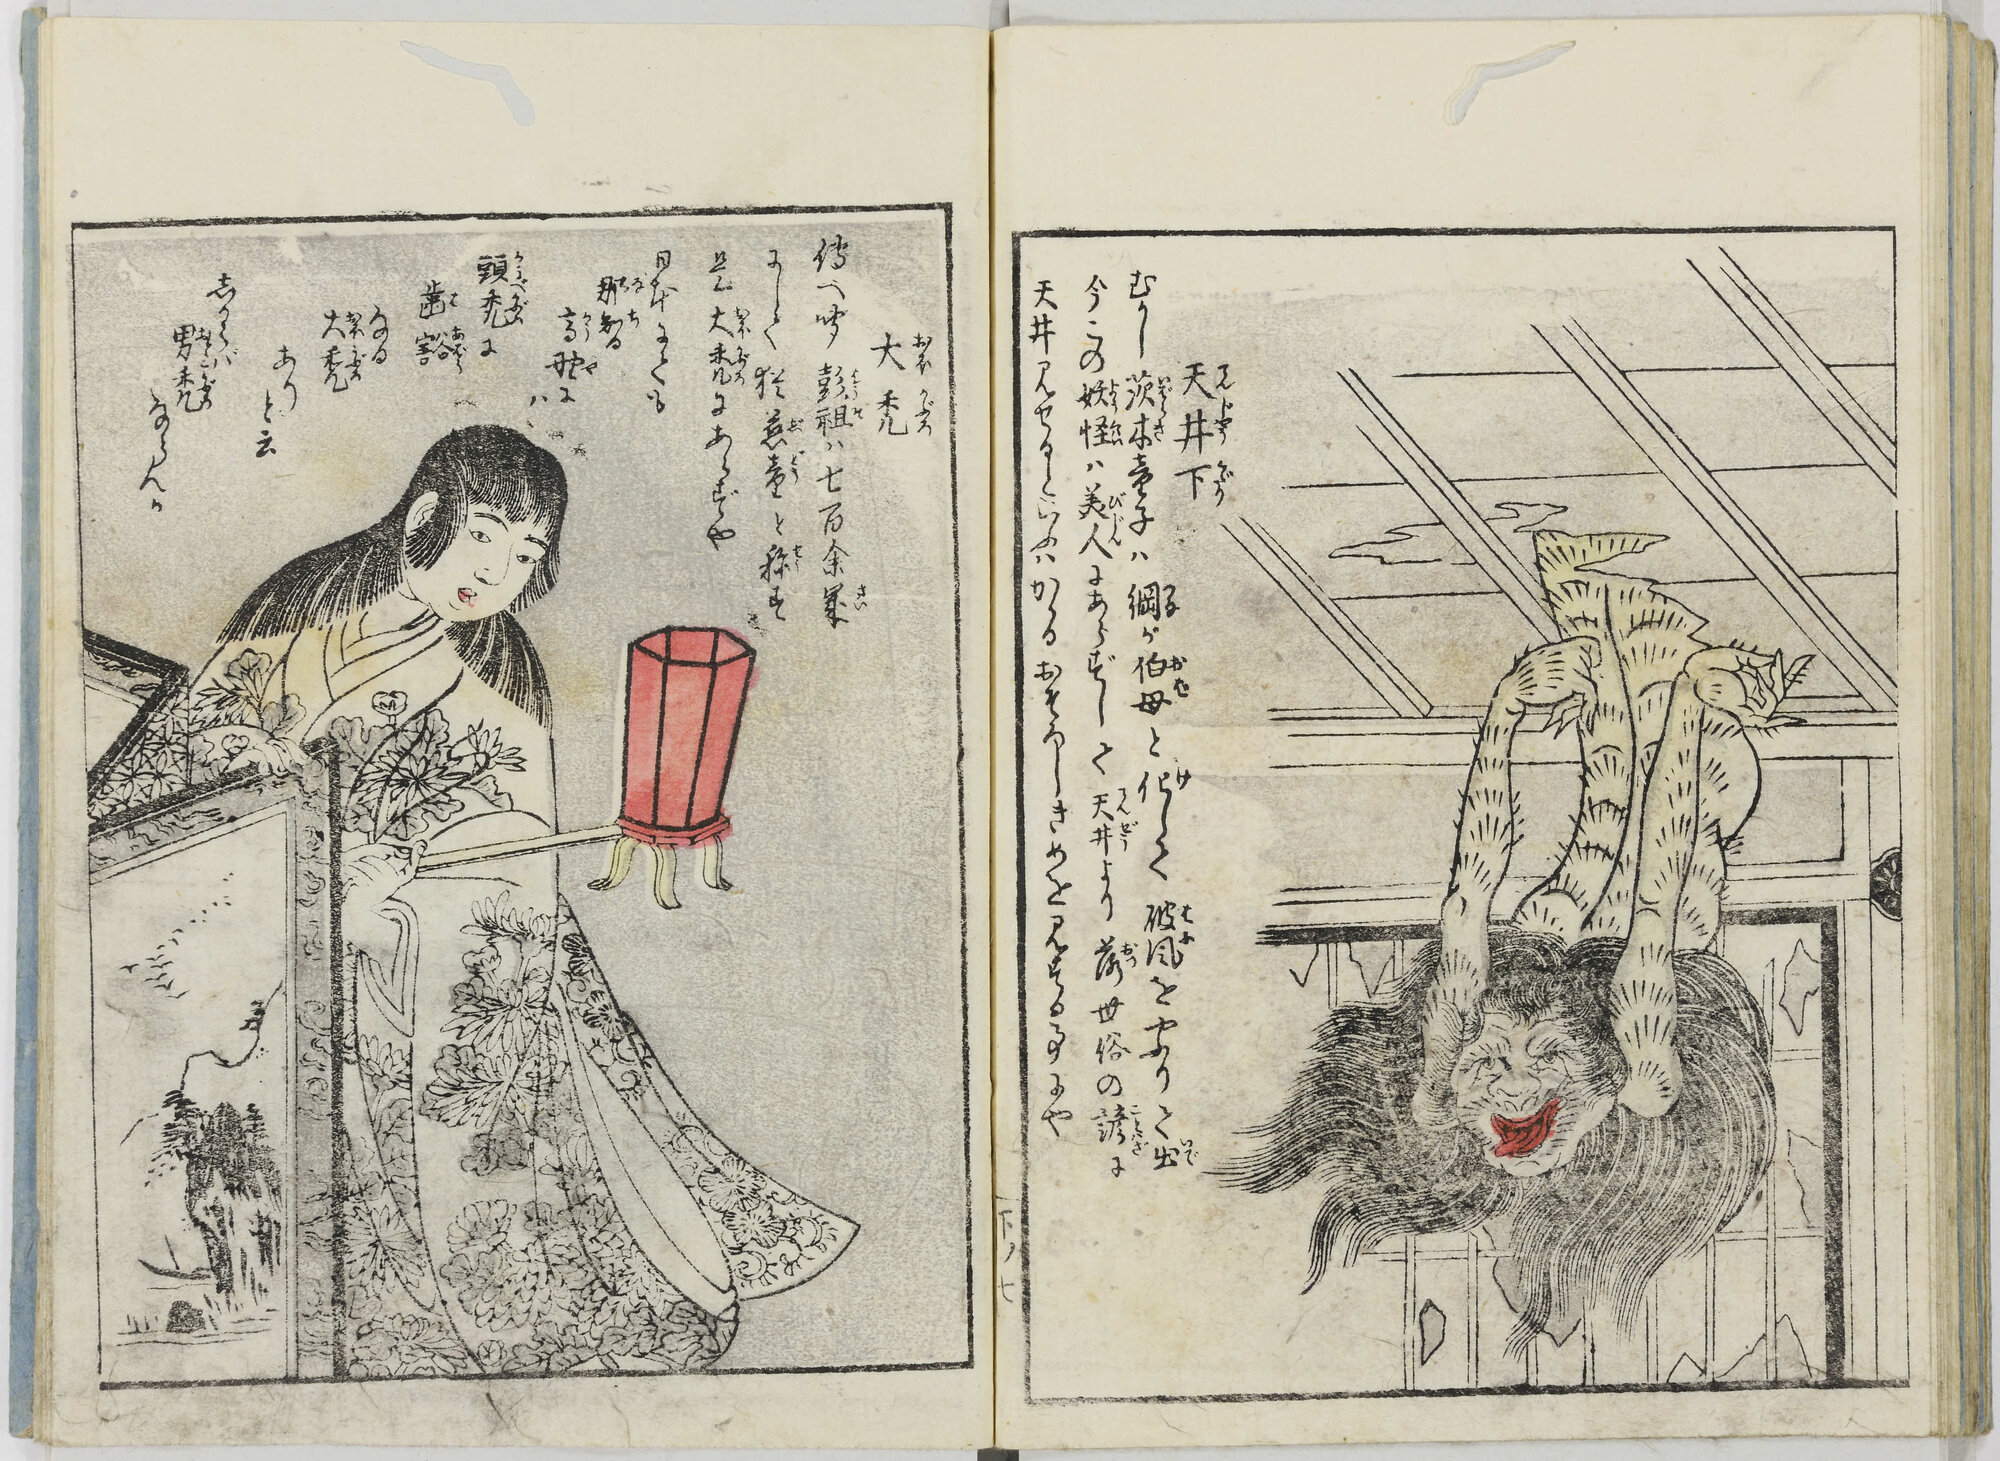 天井下
むかし茨木童子ハ綱が伯母と化して破風をやぶりて出
今この妖怪ハ美人にあらずして天井より落世俗の諺に
天井見せるといふハかゝるおそろしきめを見する事にや
大禿
傳へ聞彭祖ハ七百余歳
にして猶慈童と称す
是大禿にあらずや
日本にても
那智
高野にハ
頭禿に
歯豁
なる
大禿
ありと云
しからバ
男禿ならんか
下ノ七